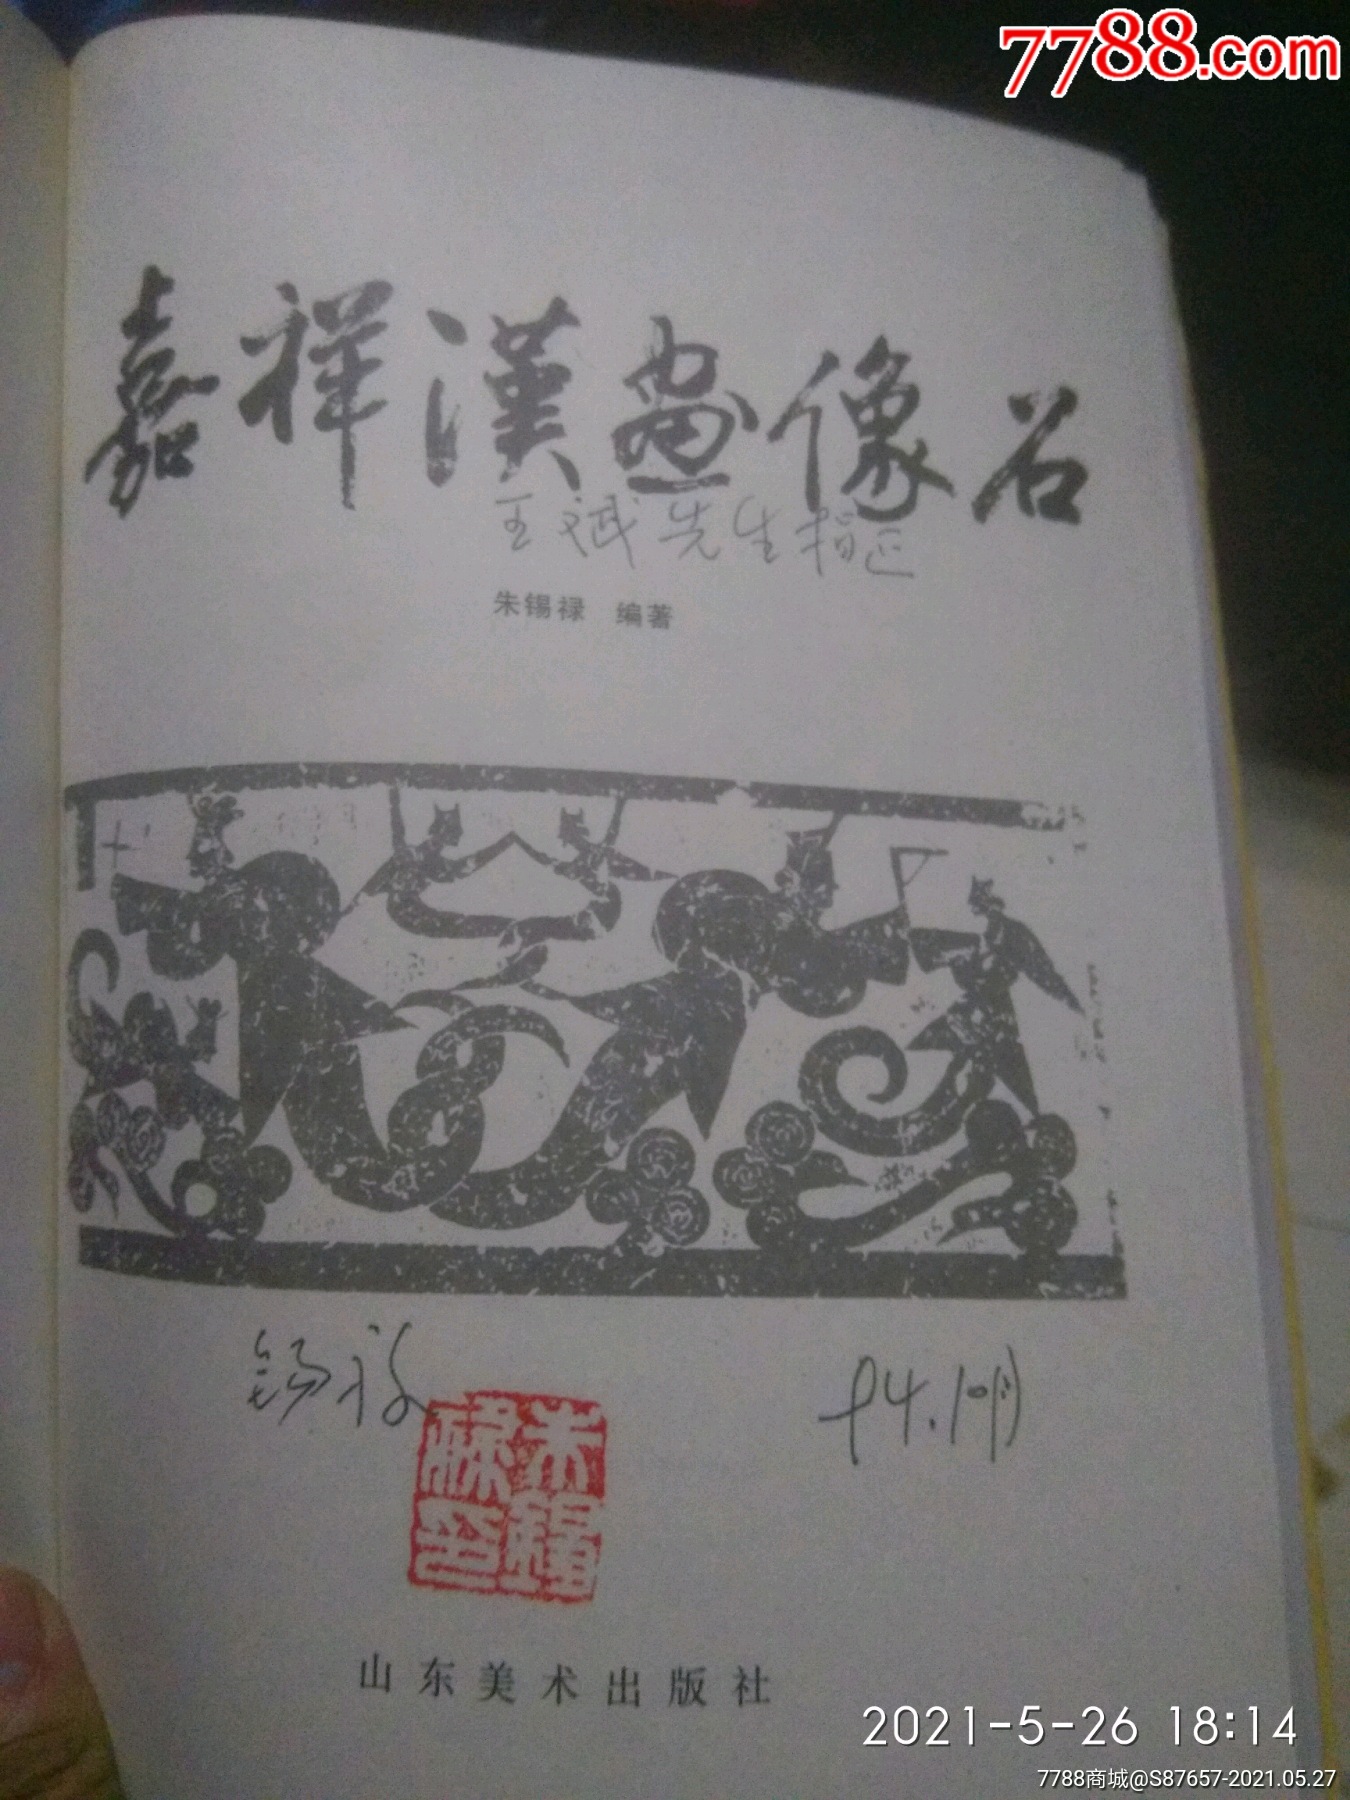 7788.com
嘉祥漢画像石
王斌先生指正
朱锡禄 编著
锡禄
94.1月
朱锡禄印
山东美术出版社
2021-5-26 18:14
7788商城@S87657-2021.05.27